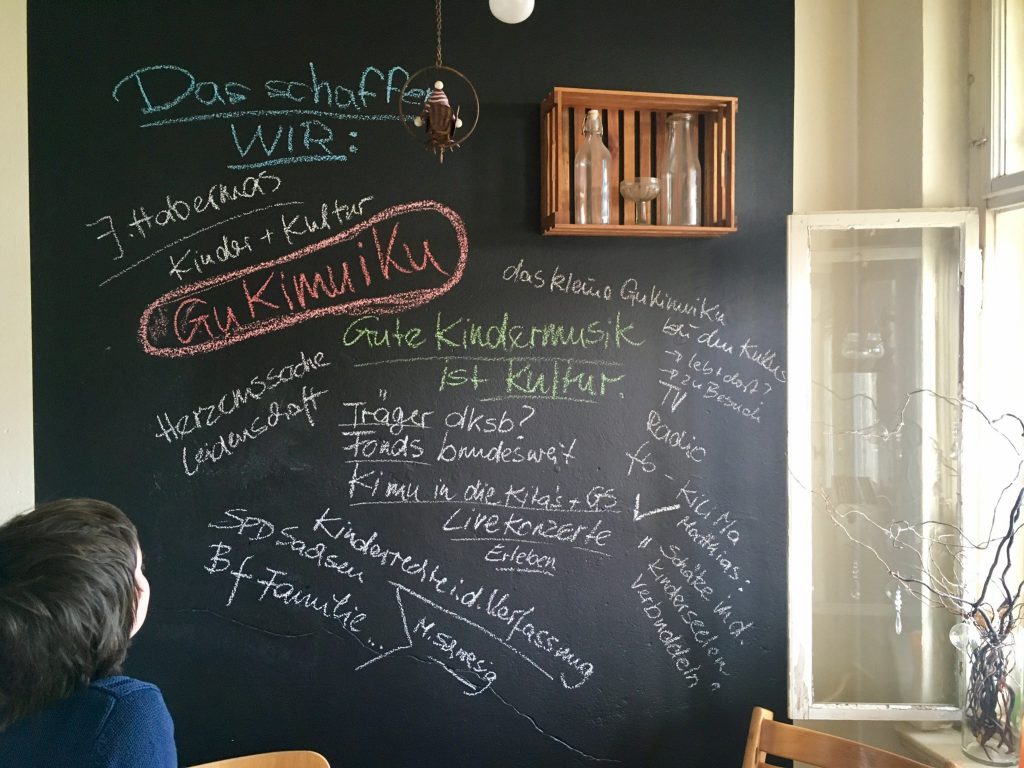 Das schaffen
WIR:
J. Habermas
Kinder + Kultur
GuKimuiKu
das kleine GuKimuiKu
bei den Kultus
→ lebt dort?
→ zu Besuch
Gute Kindermusik
ist Kultur.
TV
Radio
Herzenssache
Leidenschaft
Träger dksb?
Fonds bundesweit
Kimu in die Kita's + GS
Livekonzerte
Erleben
- KiLiMa
Matthias:
" Schätze in d.
Kinderseelen
verbuddeln "
Kinderrechte i.d. Verfassung
SPD Sachsen
Bf Familie...